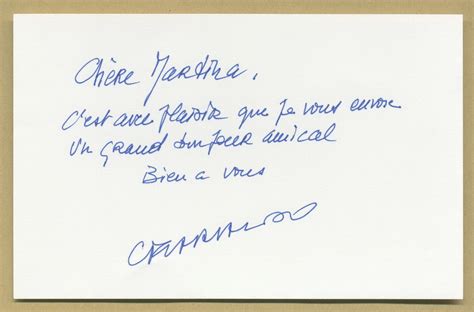 Chère Martina,
C'est avec plaisir que je vous envoie
un grand bonjour amical
Bien a vous